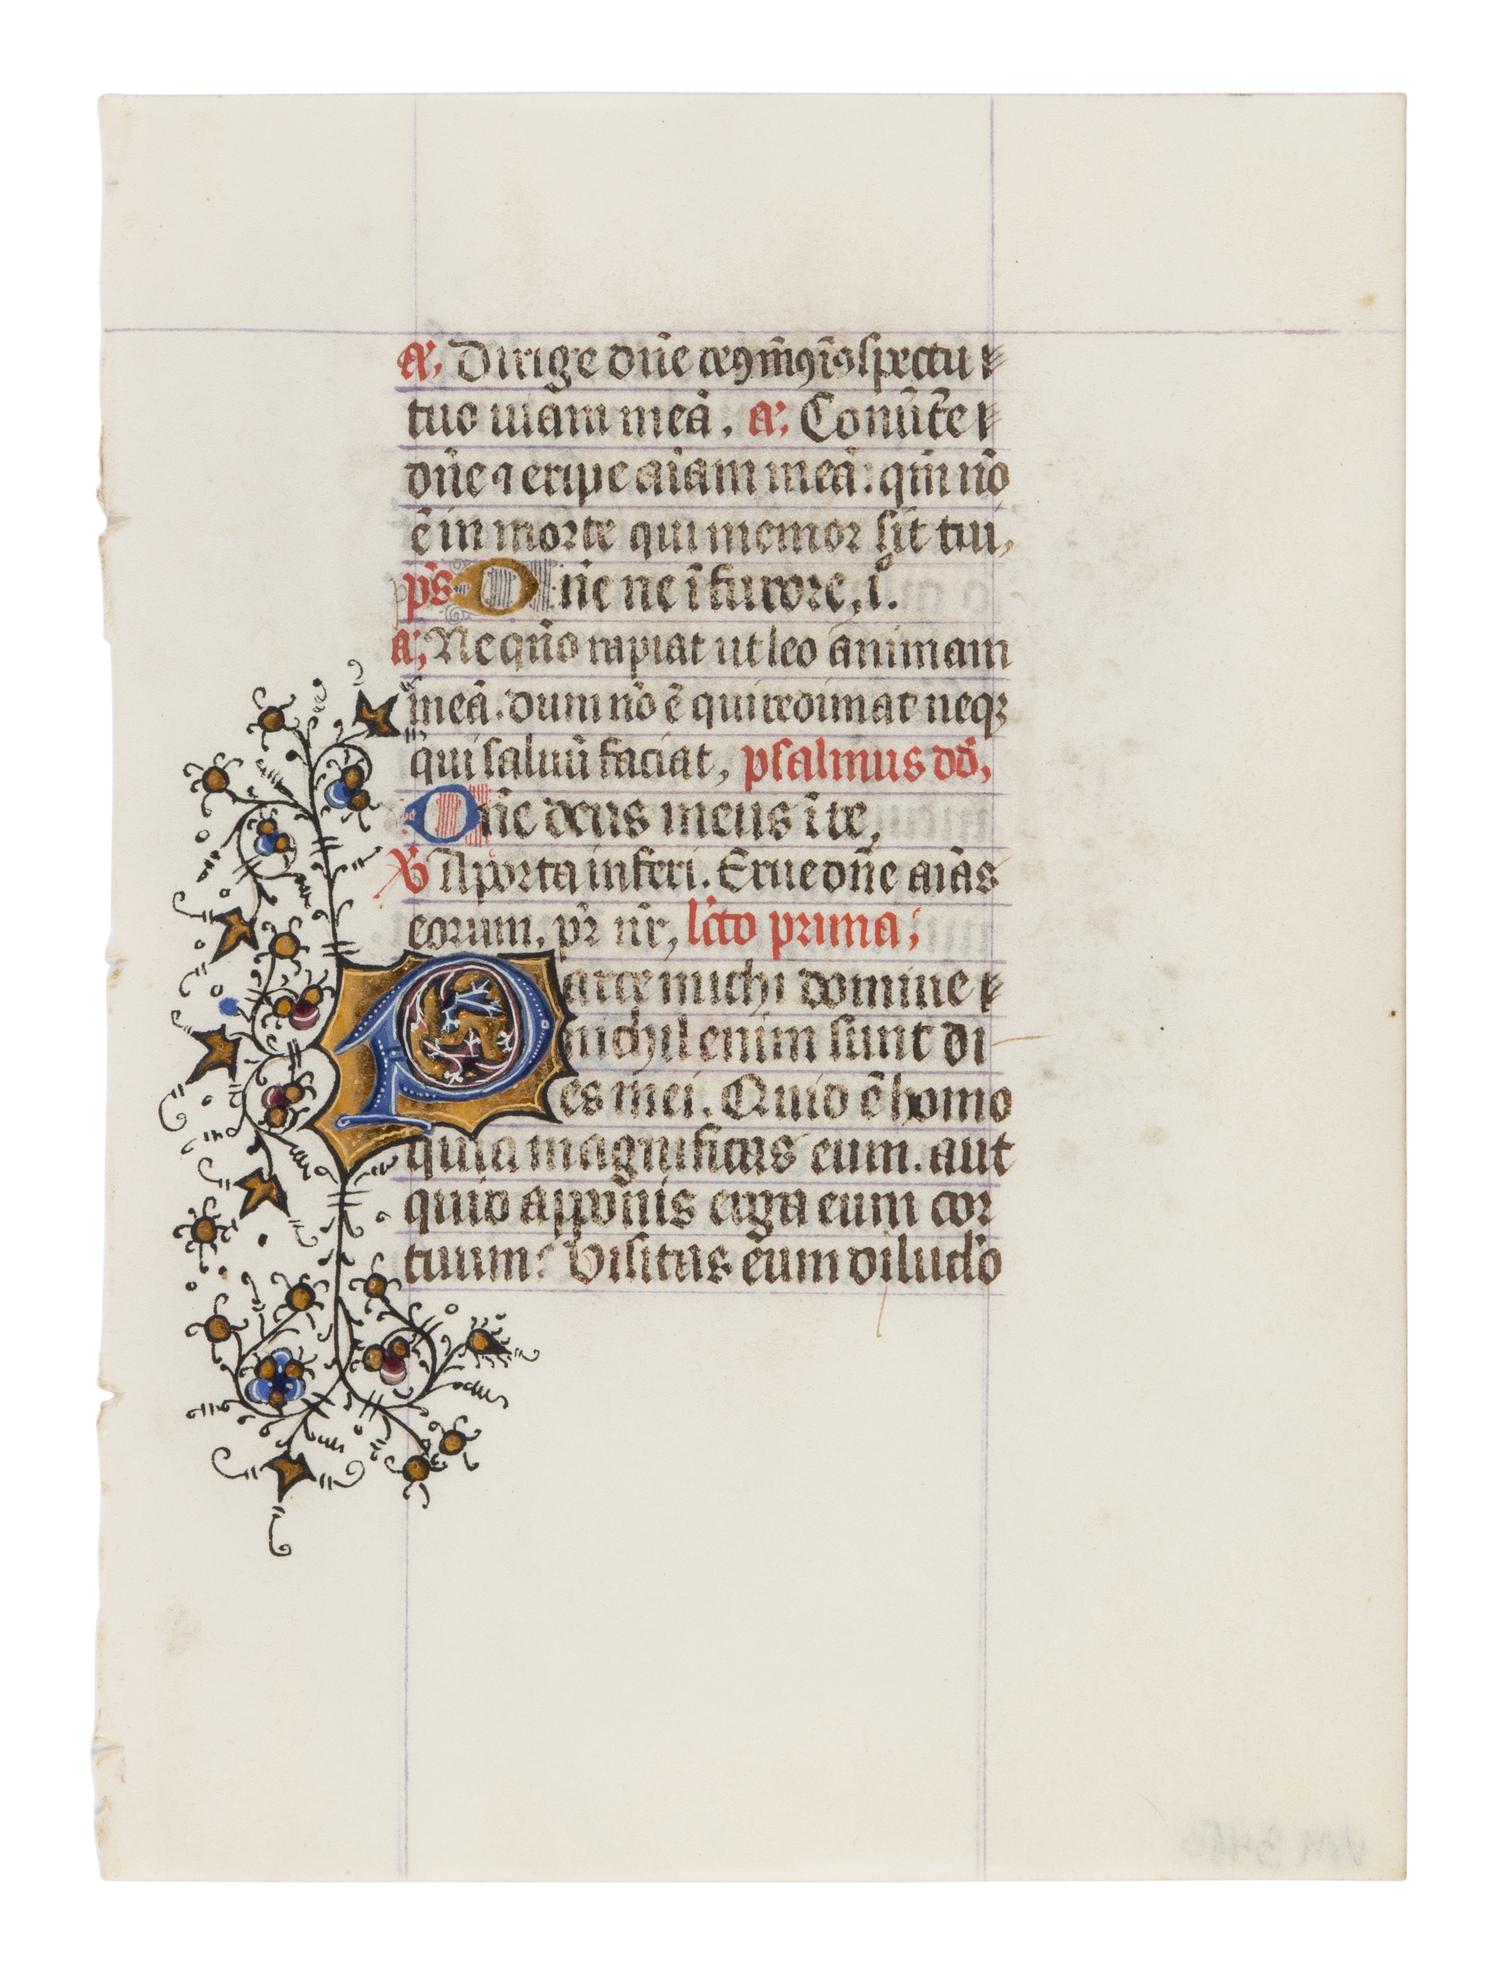 a. Dirige dn̄e spectu
tuo uiam meā. a. Conūt̄e
dn̄e ⁊ eripe aīam meā: qm̄ nō
ē in morte qui memor sit tui,
ps̄ Dn̄e ne ī furore, ī.
a. Ne qn̄o rapiat ut leo animam
meā. dum nō ē qui redimat neqꝫ
qui saluū faciat, psalmus dd̄,
Dn̄e deus meus ī te,
℣ A porta inferi. Erue dn̄e aīas
eorum, pr̄ nr̄, lc̄to prima;
Parce michi domine
nichil enim sunt di
es mei. Quid ē homo
quia magnificas eum. aut
quid apponis erga eum cor
tuum? Visitas eum diluclo